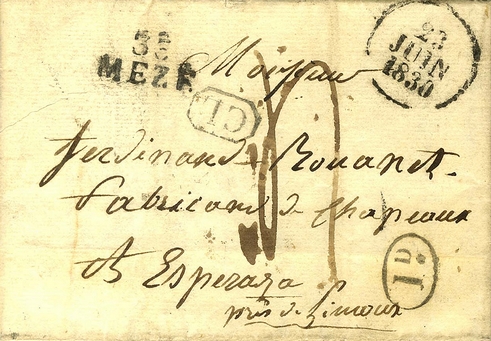 33
MEZE
23
JUIN
1830
Monsieur
CL
ferdinand Rouanet.
fabricant de chapeaux
A Esperaza
près de Limoux
1D